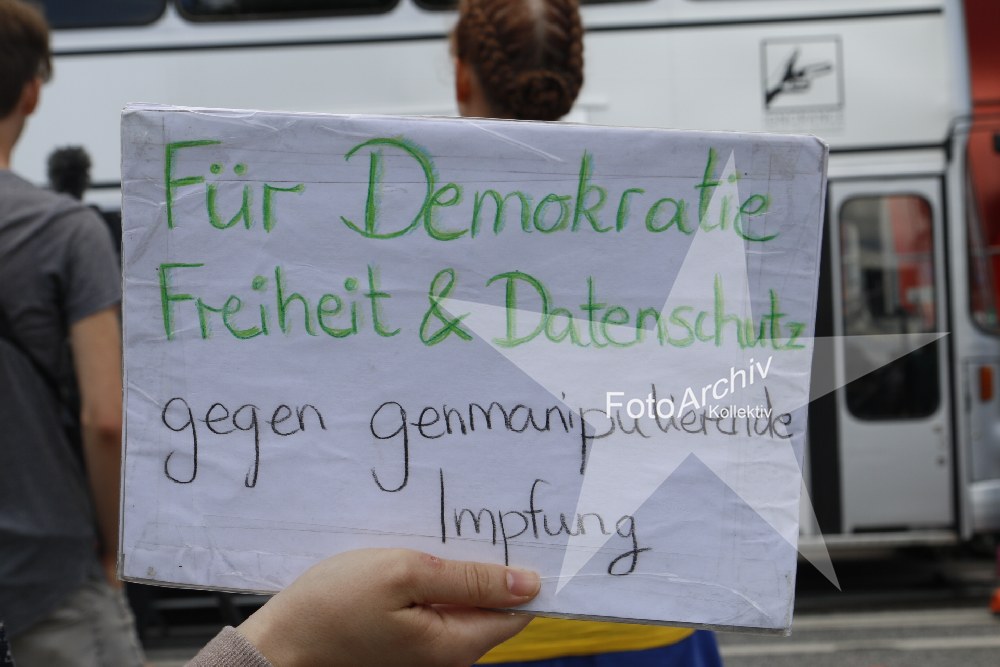 Für Demokratie
Freiheit & Datenschutz
gegen genmanipulierende
Impfung
FotoArchiv
Kollektiv